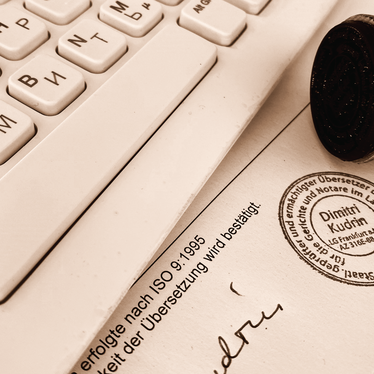 N
T
B И
M Ь
Alt Gr
erfolgte nach ISO 9:1995
keit der Übersetzung wird bestätigt.
und ermächtigter Übersetzer
für die Gerichte und Notare im La
Staatl. geprüfter
Dimitri
Kudrin
LG Frankfurt a.
AZ 316E-